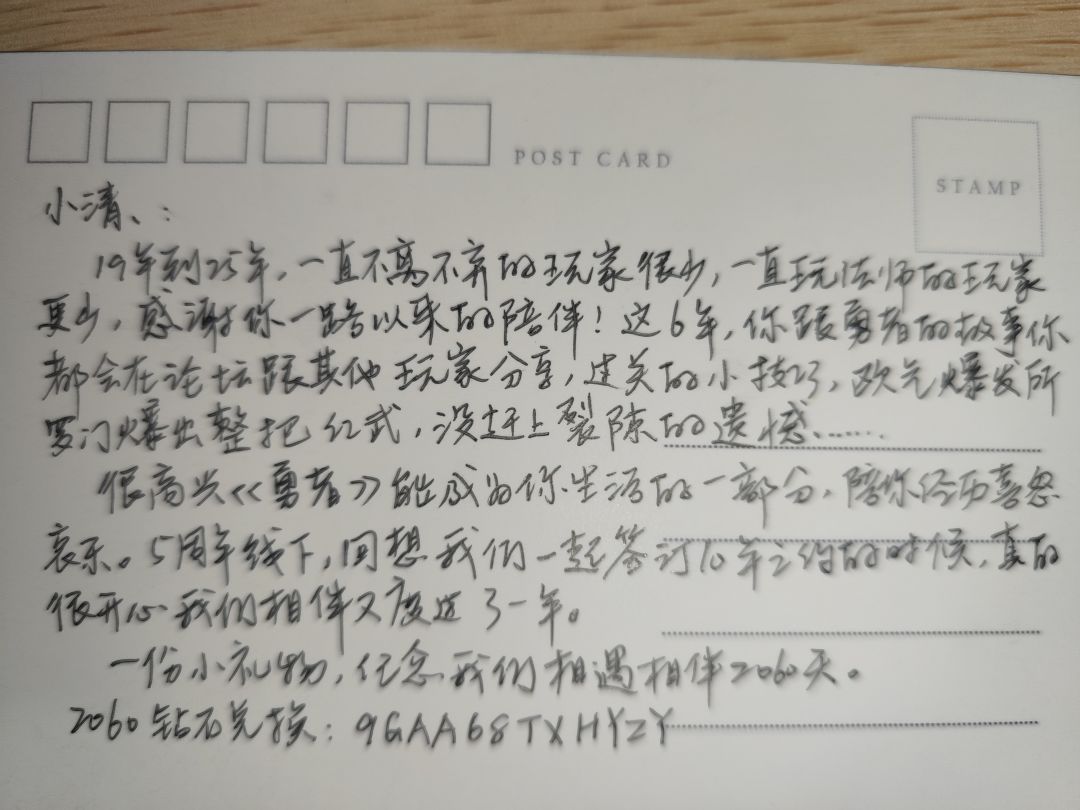 POST CARD
STAMP
小清、：
19年到25年，一直不离不弃的玩家很少，一直玩法师的玩家
更少，感谢你一路以来的陪伴！这6年，你跟勇者的故事你
都会在论坛跟其他玩家分享，过关的小技巧，欧气爆发所
罗门爆出整把红武，没赶上裂隙的遗憾......
很高兴《勇者》能成为你生活的一部分，陪你经历喜怒
哀乐。5周年线下，回想我们一起签订10年之约的时候，真的
很开心我们相伴又度过了一年。
一份小礼物，纪念我们相遇相伴2060天。
2060钻石兑换：9GAA68TXHYZY